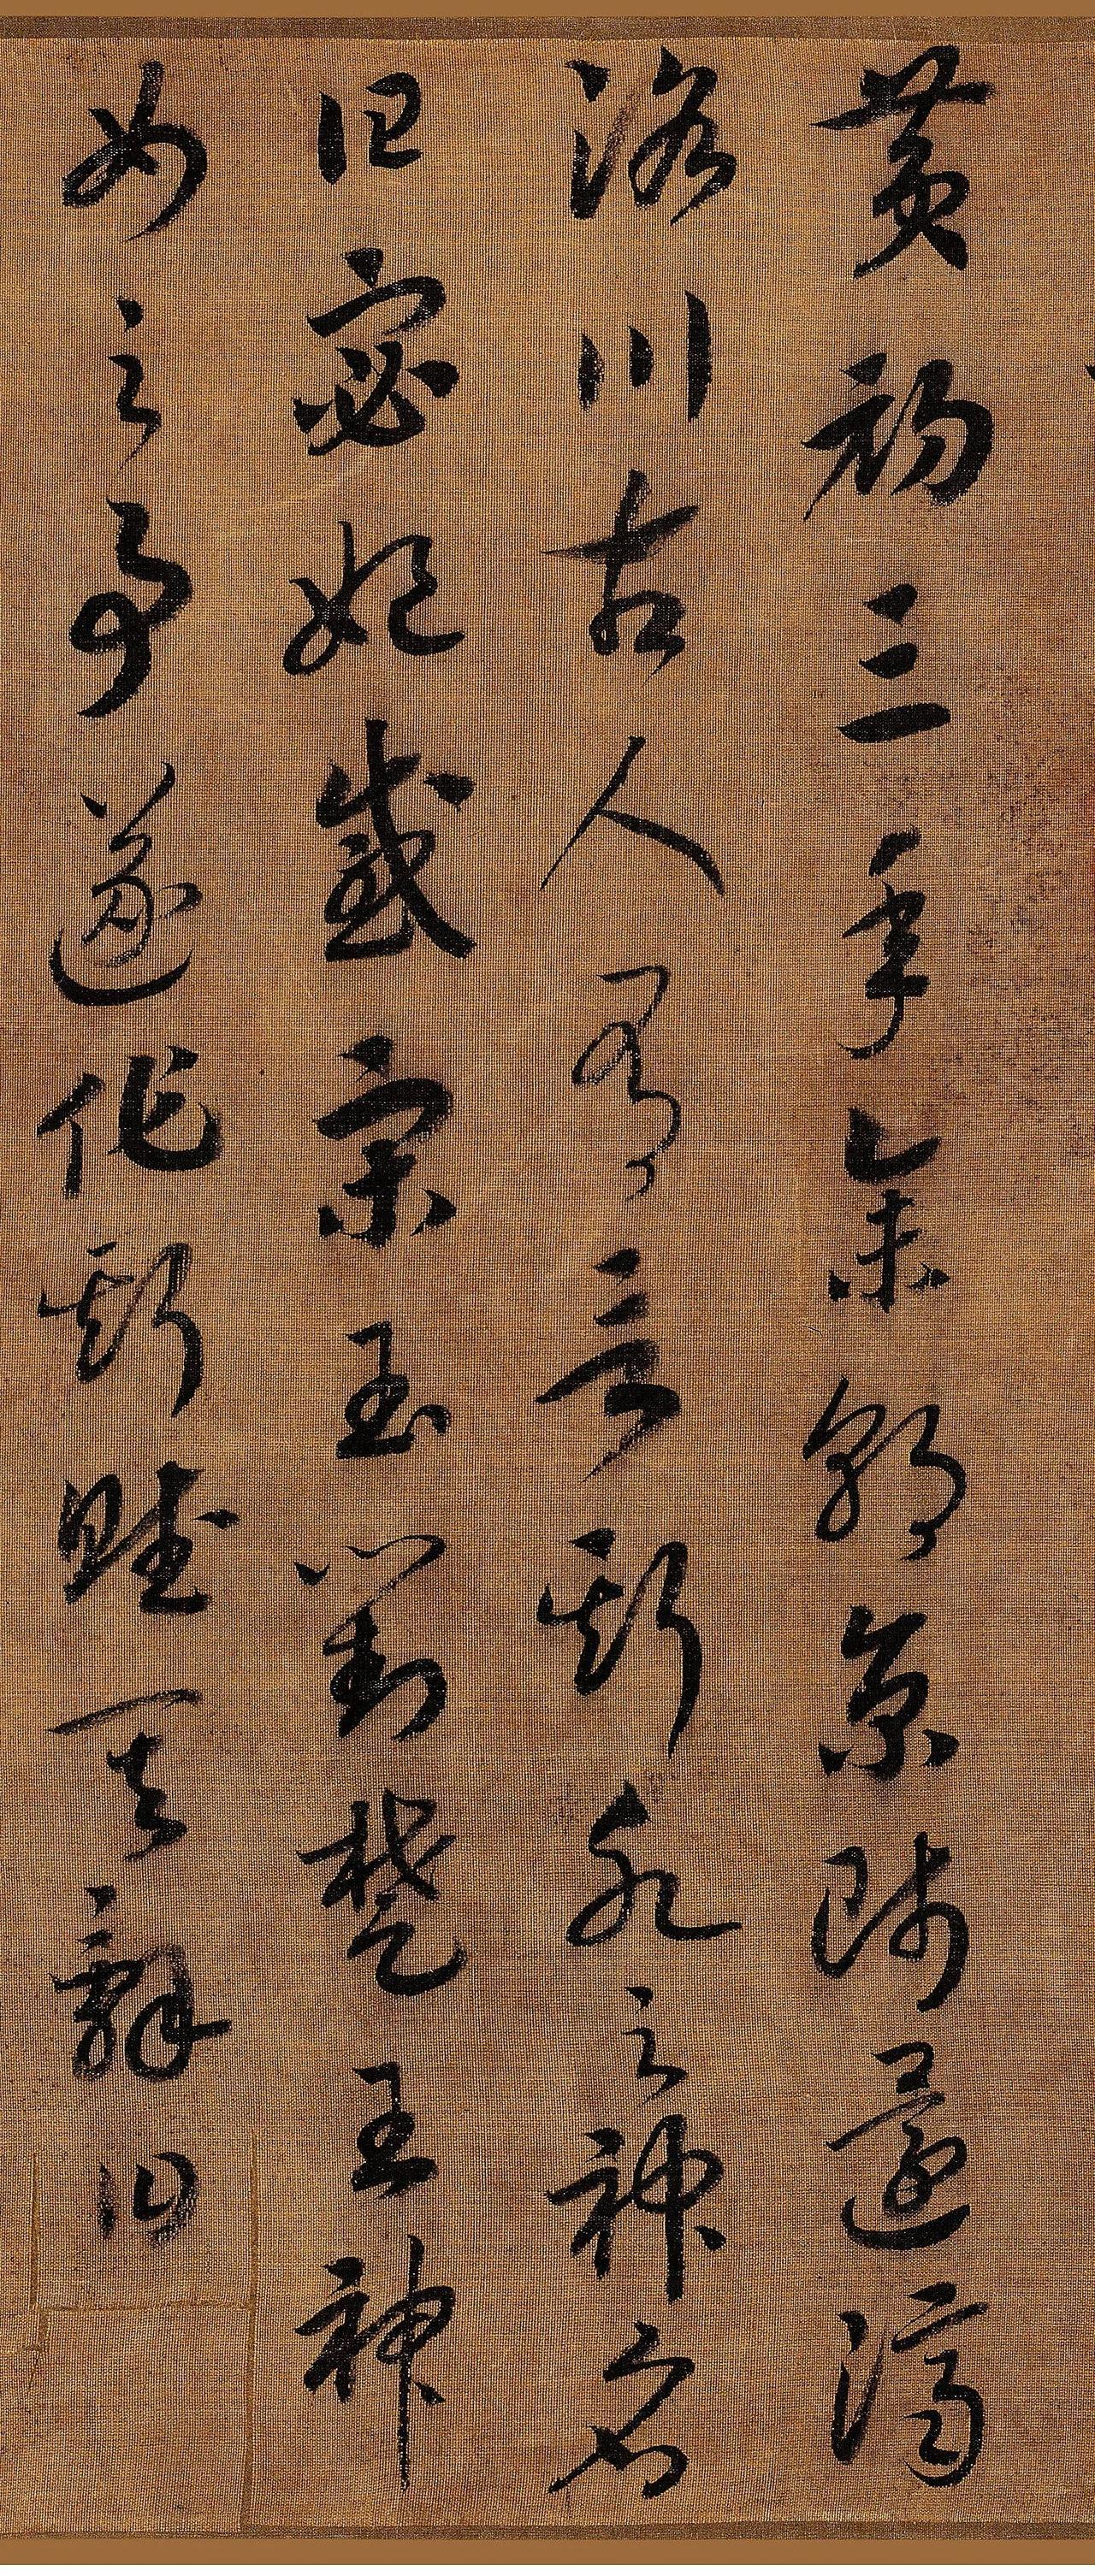 黃初三年余朝京師還濟
洛川古人有言斯水之神名
曰宓妃感宋玉對楚王神
女之事遂作斯賦其辭曰